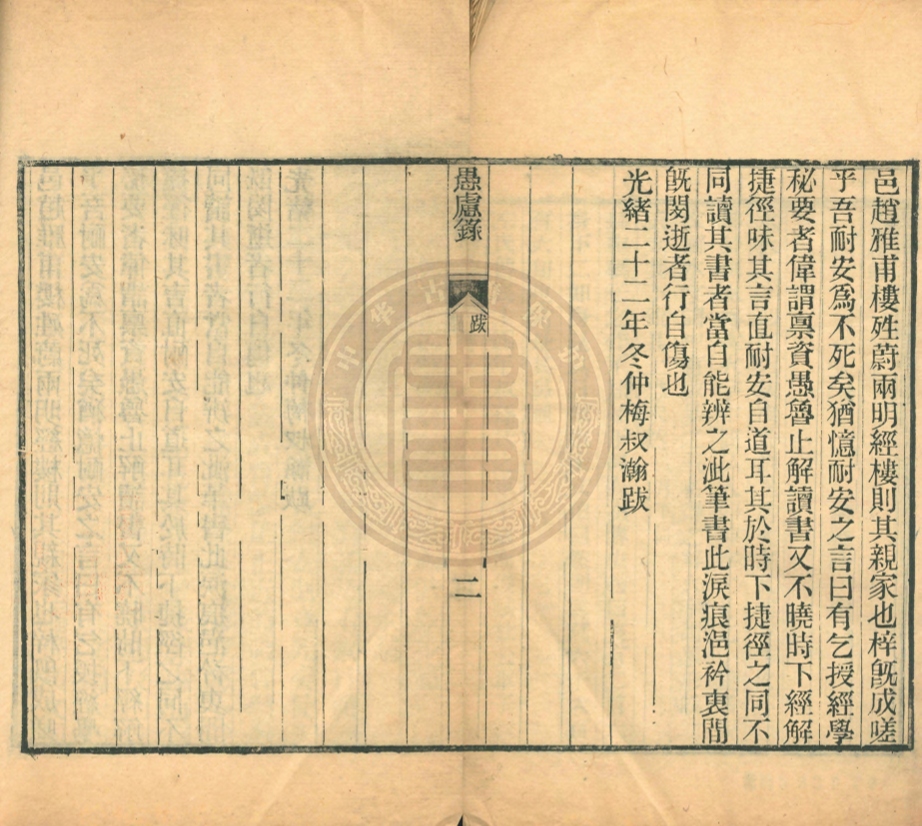 邑趙雅甫樓姓蔚兩明經樓則其親家也梓旣成嗟
乎吾耐安爲不死矣猶憶耐安之言曰有乞授經學
秘要者偉謂禀資愚魯止解讀書又不曉時下經解
捷徑味其言直耐安自道耳其於時下捷徑之同不
同讀其書者當自能辨之泚筆書此淚痕浥衿裏間
旣閔逝者行自傷也
光緒二十二年冬仲梅叔瀚跋
愚慮錄
跋
二